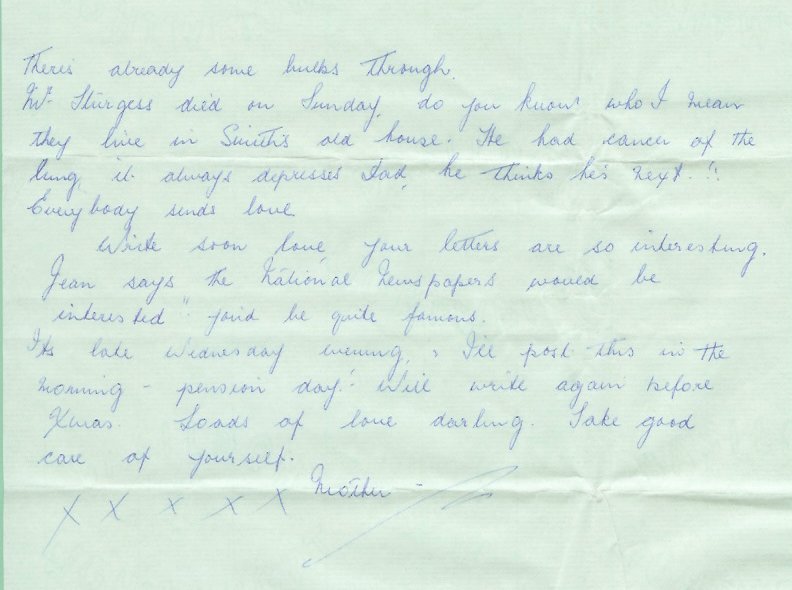 Theris already some bulbs through.
Mr Sturgess died on Sunday, do you know who I mean
they live in Smith's old house. He had cancer of the
lung, it always depresses Dad, he thinks he's next.!!
Everybody sends love.
Write soon love your letters are so interesting.
Jean says the National Newspapers would be
interested" you'd be quite famous.
Its late Wednesday evening, I'll post this in the
morning - pension day! Will write again before
Xmas. Loads of love darling. Take good
care of yourself.
Mother -
X X X X X